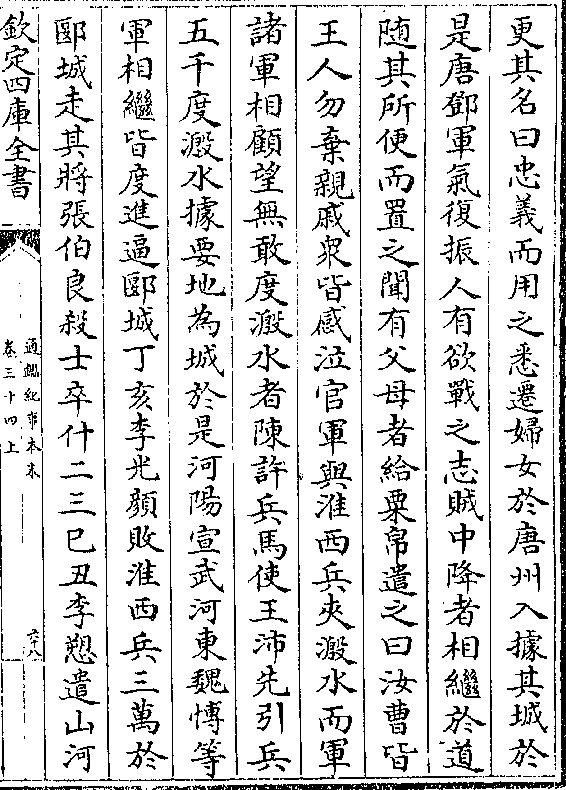 更其名曰忠義而用之悉遷婦女於唐州入據其城於
是唐鄧軍氣復振人有欲戰之志賊中降者相繼於道
随其所便而置之聞有父母者給粟帛遣之曰汝曹皆
王人勿棄親戚衆皆感泣官軍與淮西兵夾溵水而軍
諸軍相顧望無敢度溵水者陳許兵馬使王沛先引兵
五千度溵水據要地為城於是河陽宣武河東魏愽等
軍相繼皆度進逼郾城丁亥李光顔敗淮西兵三萬於
郾城走其將張伯良殺士卒什二三已丑李愬遣山河
欽定四庫全書
通鑑紀事本末
卷三十四上
六十八